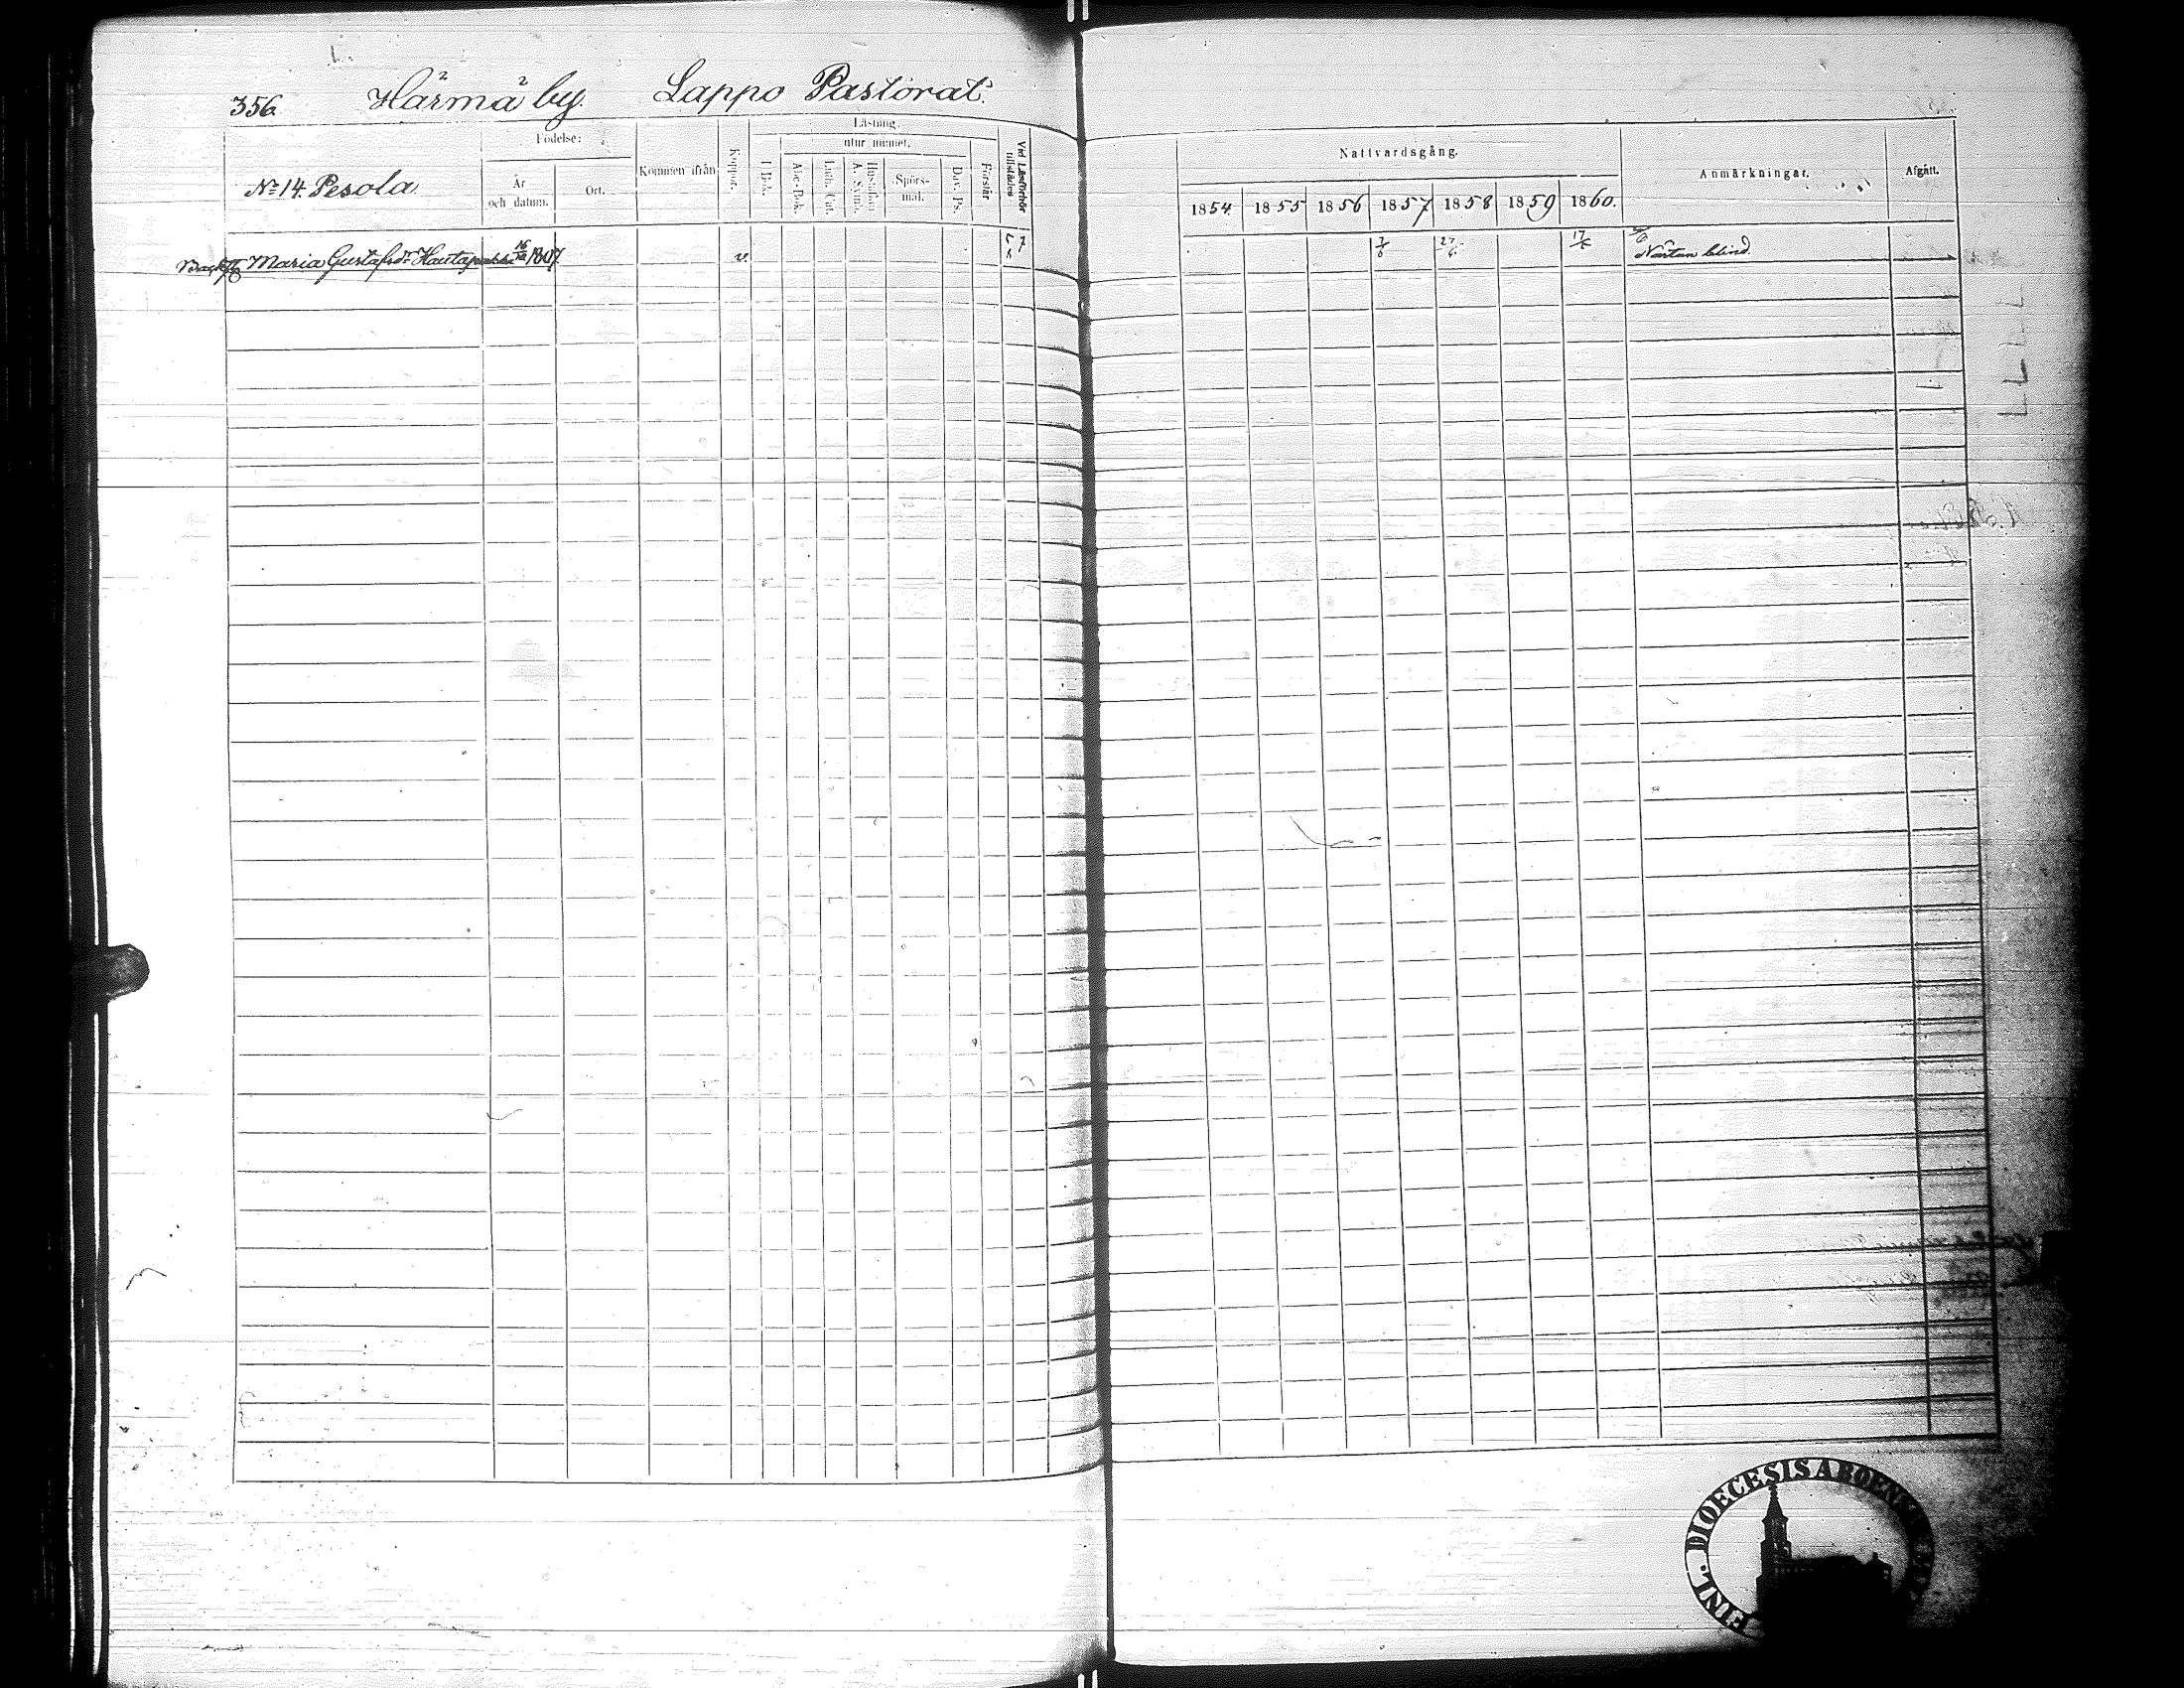 356. Härmä by. Lappo Pastorat.
No 14. Pesola
Födelse:
År och datum.
Ort.
Kommen ifrån
Koppor.
Läsning.
utur minnet.
I Bok.
Abc-Bok.
Luth. Cat.
Hustaflan A. Symb.
Spörs-mål.
Dav. Ps.
Förstår
Vid Läsförhör tillstädes
Nattvardsgång.
1854. 1855 1856 1857 1858 1859 1860.
Anmärkningar.
Afgått.
Maria Gustafsdr Hautapakka 16/12 1807. v.
7/6 27/6 17/5 Nästan blind.
FINL. DIOECESIS ABOENSI